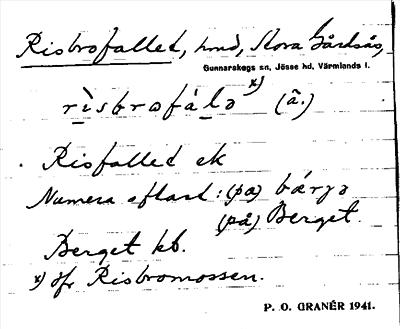 Risbrofallet, hmd, Stora Gårdsås,
Gunnarskogs sn, Jösse hd, Värmlands l.
rìsbrofála x) (ä.)
Risfallet ek
Numera oftast: (på) bárjə
(på) Berget.
Berget kb.
x) jfr Risbromossen.
P. O. GRANÉR 1941.